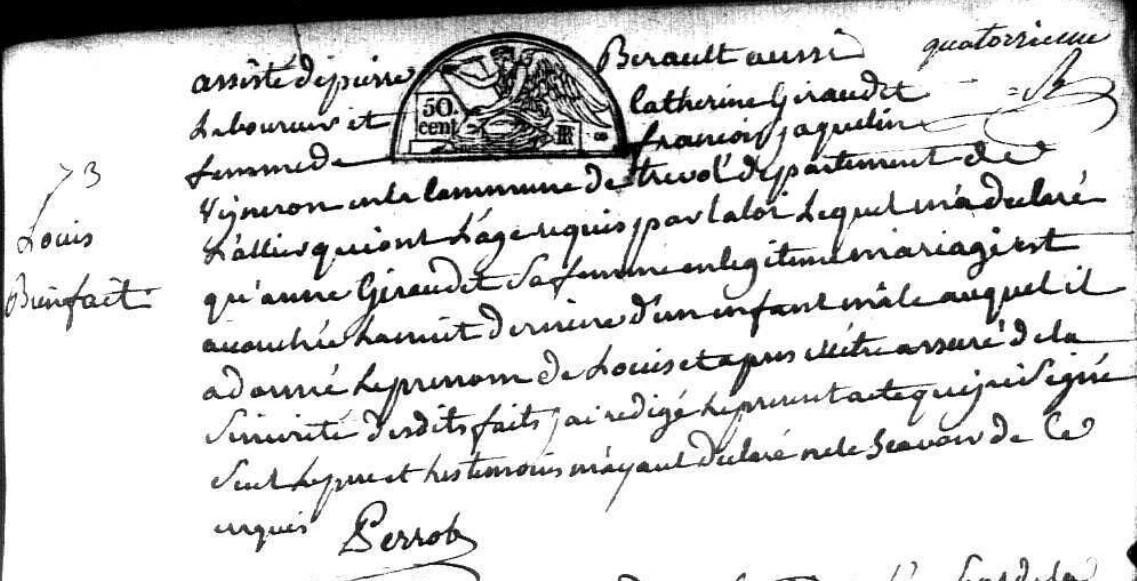 quatorzieme
assisté de pierre Berault aussi
Laboureur et Catherine Giraudet
femme de francois jaquelin
Vigneron en la Commune de trevol département de
L'allier qui ont L'âge requis par la loi Lequel m'a declaré
qu'anne Giraudet Sa femme en legitime mariage est
acouchée La nuit derniere d'un enfant mâle auquel il
a donné Le prenom de Louis et apres m'être assuré de la
Sincerité desdits faits j'ai redigé Le present acte que j'ai Signé
Seul Le pere et Les temoins m'ayant declaré ne le Scavoir de Ce
enquis Perrot
73
Louis
Bienfait
50.
cent